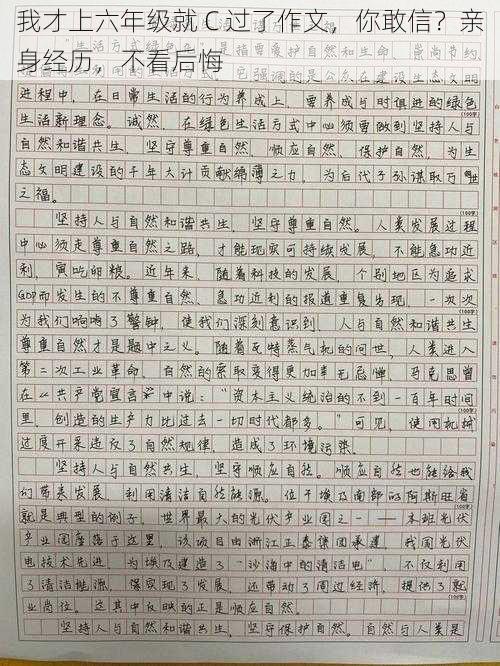 我才上六年级就 C 过了作文，你敢信？亲
身经历，不看后悔
生活方式 是指要爱护自然和生命、崇尚节约
它强调的是公众在建设生态文明
进程中，在日常生活的行为养成上，要养成与时俱进的绿色
生活新理念。诚然，在绿色生活方式中心须要做到坚持人与
自然和谐共生，坚守尊重自然、顺应自然、保护自然，为生
态文明建设的千年大计贡献绵薄之力，为后代子孙谋取万世
之福。
坚持人与自然和谐共生，坚守尊重自然。人类发展过程
中心须走尊重自然之路，才能现实可持续发展，不能急功近
利，寅吃卯粮。近年来，随着科技的发展，个别地区为追求
GDP而发生的不尊重自然、急功近利的报道重复出现，一次次
(100字)
为我们响响了警钟，使我们深刻意识到，人与自然和谐共生
尊重自然才是题中之义。随着瓦特蒸气机的问世，人类进入
第二次工业革命，自然的索取变得更加肆无忌惮，马克思曾
在《共产党宣言》中说："资本主义统治的不到一百年时间
里，创造的生产力比过去一切时代都多。"可见，使用机械
过度开采违反了自然规律，造成了环境污染。
坚持人与自然共生，坚守顺应自然。顺应自然也能给我
们带来发展，利用清洁自然能源。位于埃及南部的阿斯旺省
就是典型的例子，世界最大的光伏产业园之一——本班光伏
产业园座落于这里，该项目由浙江正泰集团承建，我国光伏
电技术先进，为埃及建造了"沙海中的清洁电"，不仅利用
了清洁能源，保实现了发展，还带动了周边经济，提供了就
业岗位。这其中反映的正是顺应自然。
坚持人与自然和谐共生，坚守保护自然。自然与人类是